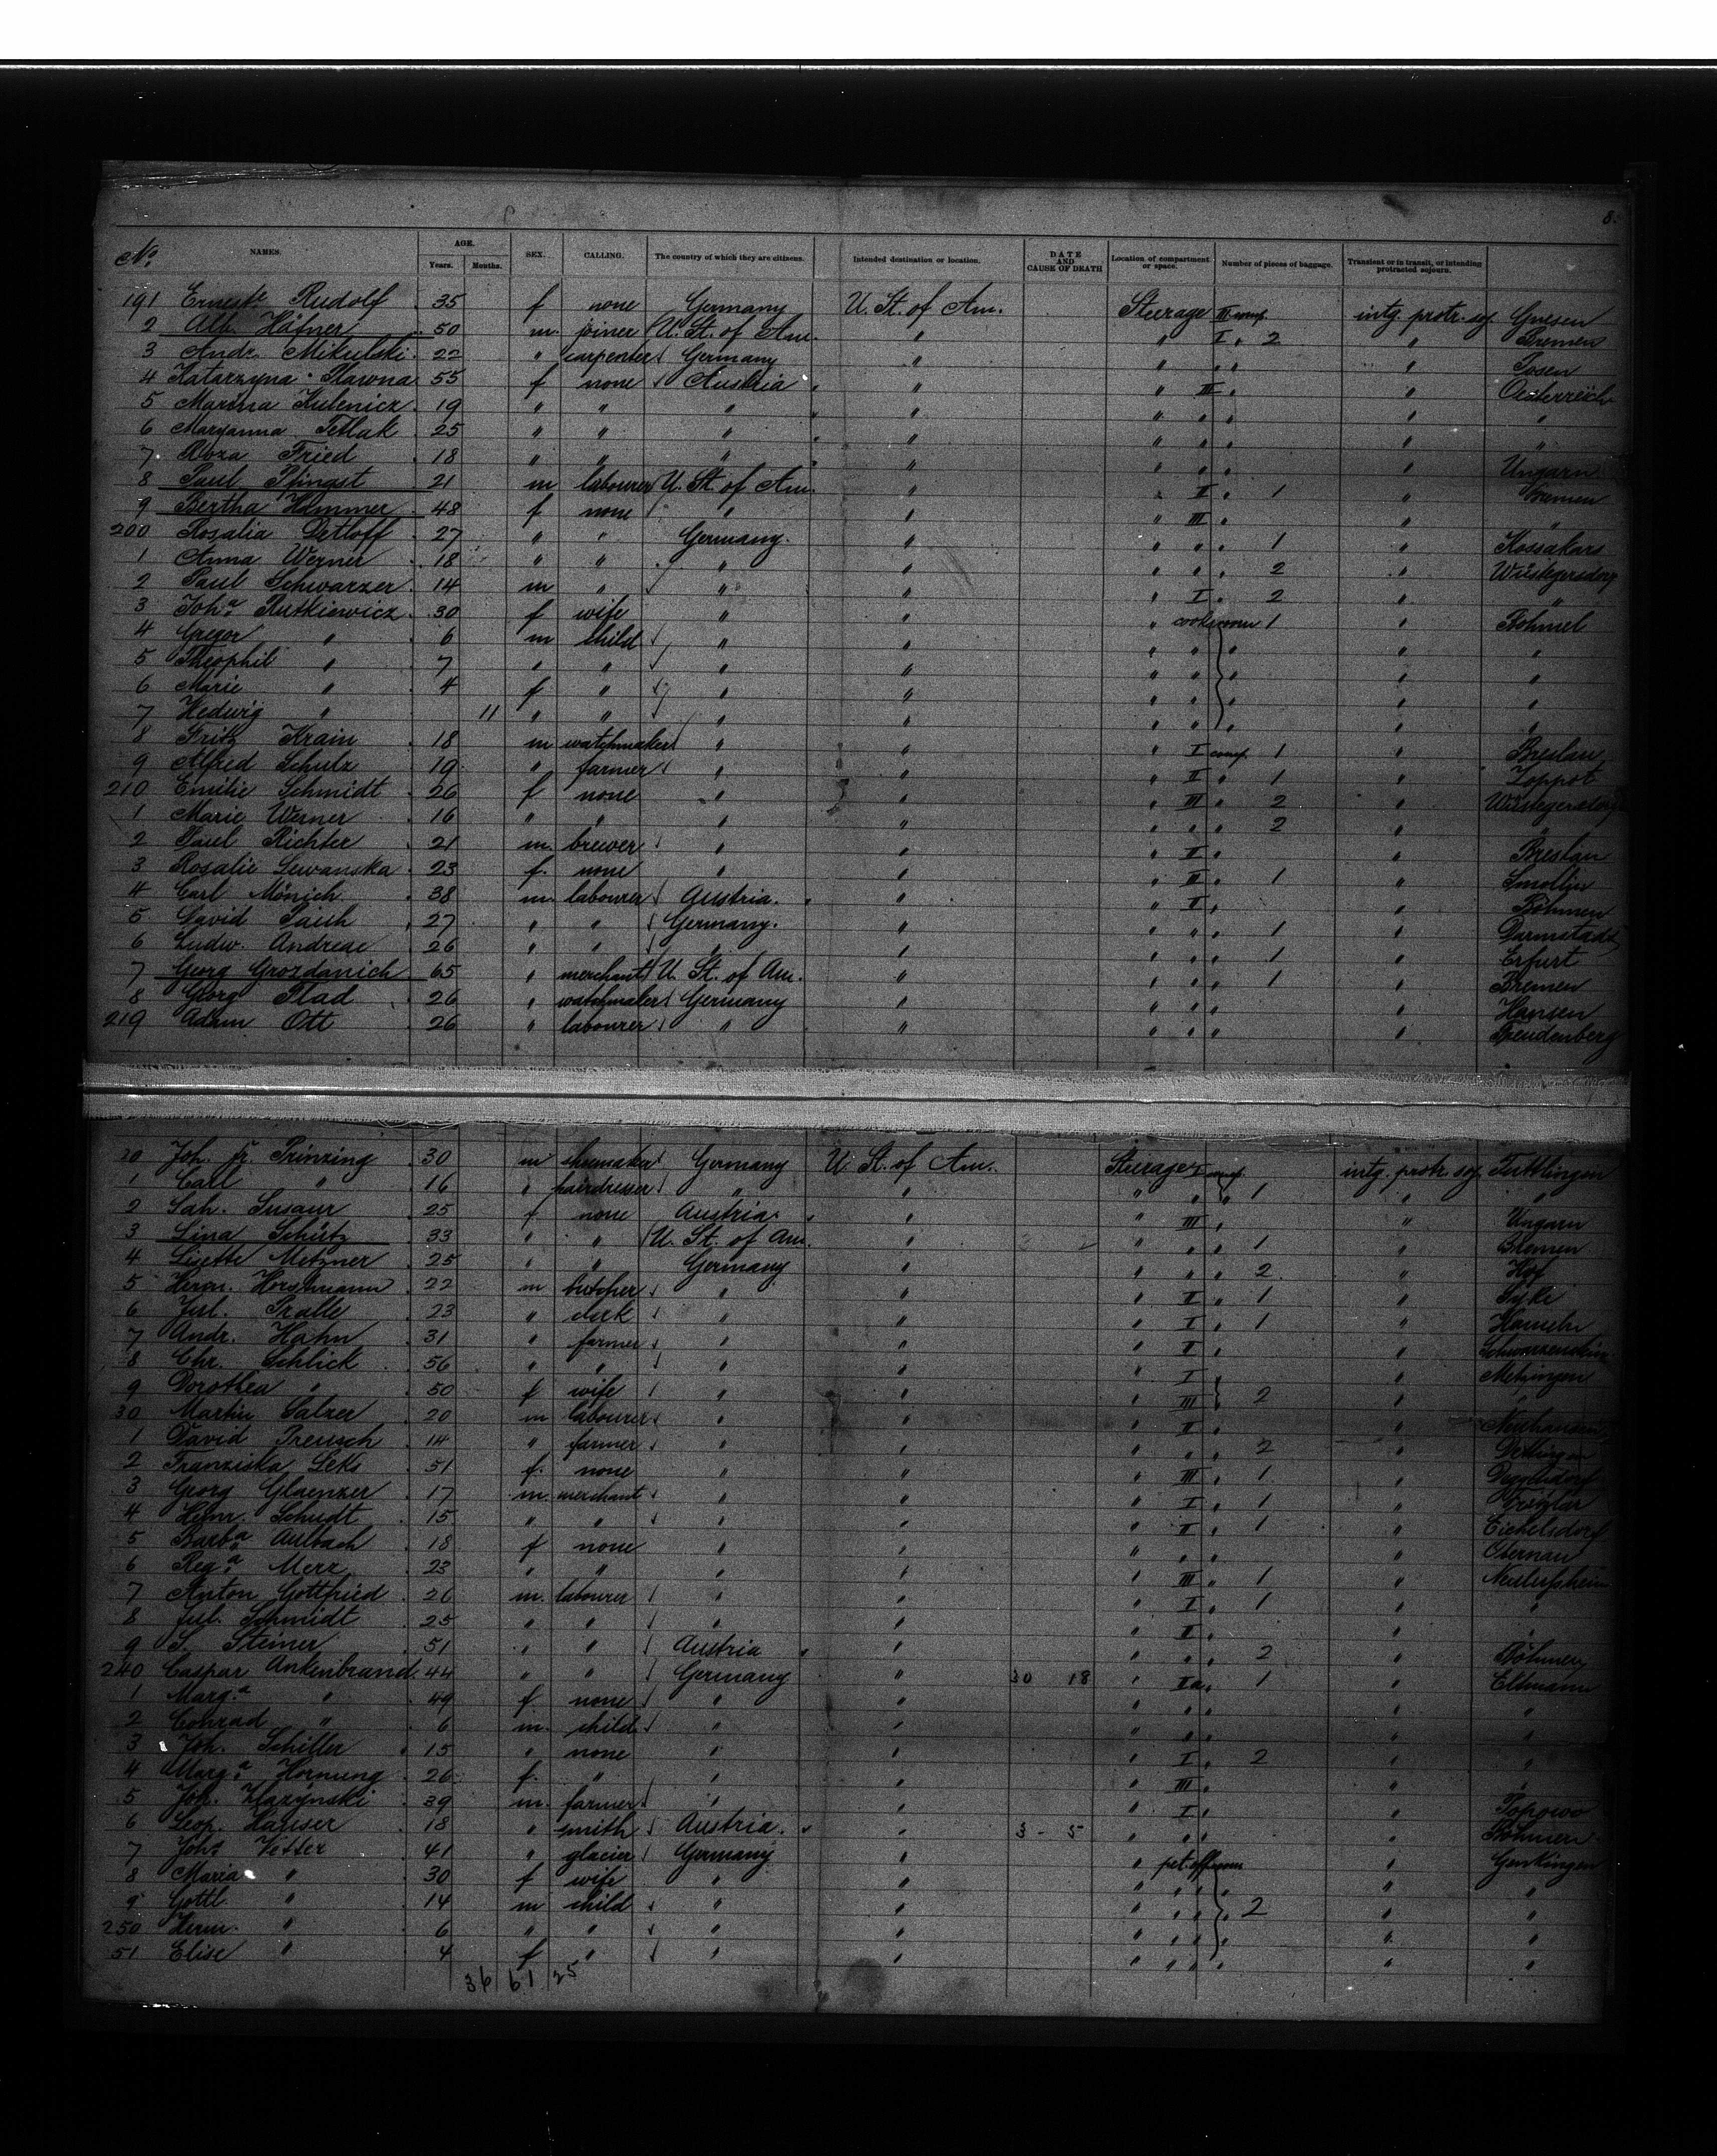 8.
No. NAMES. AGE. Years. Months. SEX. CALLING. The country of which they are citizens. Intended destination or location. DATE AND CAUSE OF DEATH Location of compartment or space. Number of pieces of baggage. Transient or in transit, or intending protracted sojourn.
191 Ernestse Rudolf 35 f none Germany U. St. of Am. Steerage III comp. intg. protr. soj. Gnesen
2 Alb. Häfner 50 m. joiner U. St. of Am. " " I " 2 " Bremen
3 Andr. Mikulski 22 " carpenter Germany " " " " " Posen
4 Katarzyna Slawna 55 f none Austria " " III " " Oesterreich
5 Marina Kulenicz 19 " " " " " " " " "
6 Maryanna Tetlak 25 " " " " " " " " "
7 Roza Fried 18 " " " " " " " " Ungarn
8 Paul Pfingst 21 m labourer U. St. of Am. " " II " 1 " Bremen
9 Bertha Hammer 48 f none " " " III " " "
200 Rosalia Detloff 27 " " Germany " " " " 1 " Kossakars
1 Anna Werner 18 " " " " " " " 2 " Wüstegersdorf
2 Paul Schwarzer 14 m " " " " I " 2 " "
3 Joha. Rutkiewicz 30 f wife " " " cooksroom 1 " Böhmel
4 Gregor " 6 m child " " " " " " "
5 Theophil " 7 " " " " " " " " "
6 Marie " 4 f " " " " " " " "
7 Hedwig " 11 " " " " " " " " "
8 Fritz Krain 18 m watchmaker " " " I comp. 1 " Breslau
9 Alfred Schulz 19 " farmer " " " II " 1 " Zoppot
210 Emilie Schmidt 26 f none " " " III " 2 " Wüstegersdorf
1 Marie Werner 16 " " " " " " " 2 " "
2 Paul Richter 21 m. brewer " " " II " " Breslau
3 Rosalie Lewanska 23 f. none " " " II " 1 " Smollin
4 Carl Mönich 38 m. labourer Austria " " II " " Böhmen
5 David Pauh 27 " " Germany. " " " " 1 " Darmstadt
6 Ludw. Andreae 26 " " " " " " " 1 " Erfurt
7 Georg Grozdanich 65 " merchant U. St. of Am. " " " " 1 " Bremen
8 Georg Plad 26 " watchmaker Germany " " " " " Hansen
219 Adam Ott 26 " labourer " " " " " " Freudenberg
20 Joh. Fr. Prinzing 30 m shoemaker Germany U St. of Am. Steerage I comp. intg. protr. soj. Tuttlingen
1 Carl " 16 " hairdresser " " " " " 1 " "
2 Sah. Susaur 25 f none Austria " " III " " Ungarn
3 Lina Schütz 33 " " U. St. of Am. " " " " 1 " Bremen
4 Lisette Metzner 25 " " Germany " " " " 2 " Hof
5 Herm. Horstmann 22 m butcher " " " II " 1 " Syke
6 Jul. Pralle 23 " clerk " " " I " 1 " Hameln
7 Andr. Hahn 31 " farmer " " " II " "
8 Chr. Schlick 56 " " " " " I " " Metzingen
9 Dorothea " 50 f wife " " " III " 2 " "
30 Martin Salzer 20 m labourer " " " II " " Neuhausen
1 David Preusch 14 " farmer " " " " " 2 " Dettingen
2 Franziska Leks 51 f. none " " " III " 1 " Deggelsdorf
3 Georg Glaenzer 17 m. merchant " " " I " 1 " Fritzlar
4 Heinr. Schudt 15 " " " " " II " 1 " Eichelsdorf
5 Barba. Aulbach 18 f none " " " " " " Obernau
6 Rega. Merz 23 " " " " " III " 1 "
7 Anton Gottfried 26 m. labourer " " " I " 1 " "
8 Jul. Schmidt 25 " " " " " II " " "
9 S. Steiner 51 " " Austria " " " " 2 " Böhmen
240 Caspar Ankenbrand 44 " " Germany " 30 18 " IIa " 1 " Eltmann
1 Marga. " 49 f none " " " " " " "
2 Conrad " 6 m. child " " " " " " "
3 Joh. Schiller 15 " none " " " I " 2 " "
4 Marga. Hornung 26 f. " " " " III " " "
5 Joh. Klazynski 39 m. farmer " " " I " " Popowo
6 Leop. Hauser 18 " smith Austria " 3 - 5 " " " " Böhmen
7 Johs Vetter 41 " glacier Germany " " pet. off. room " Genkingen
8 Maria " 30 f wife " " " " " " "
9 Gottl. " 14 m child " " " " " 2 " "
250 Herm. " 6 " " " " " " " " "
51 Elise " 4 f " " " " " " " "
36 61 25